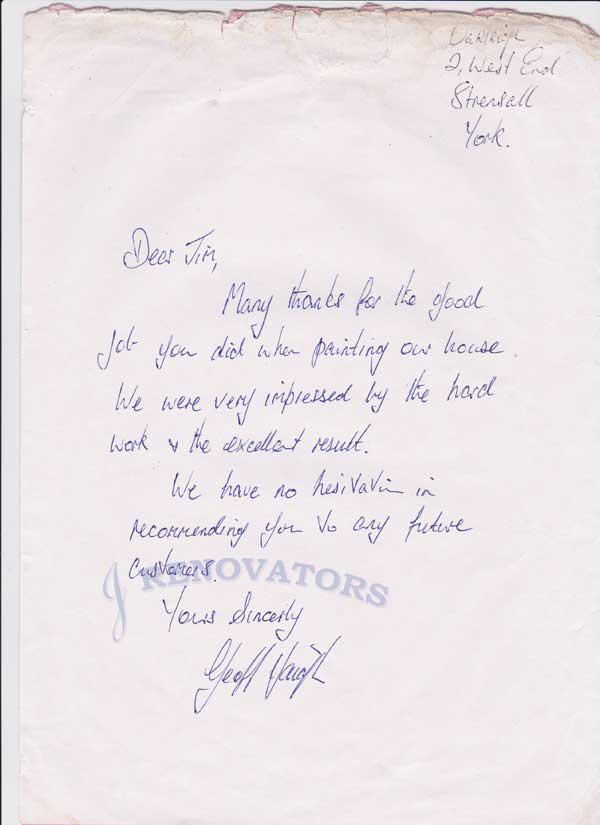 Oakleigh
2, West End
Strensall
York.
Dear Jim,
Many thanks for the good
job you did when painting our house.
We were very impressed by the hard
work & the excellent result.
We have no hesitation in
recommending you to any future
customers.
J RENOVATORS
Yours Sincerly
Geoff